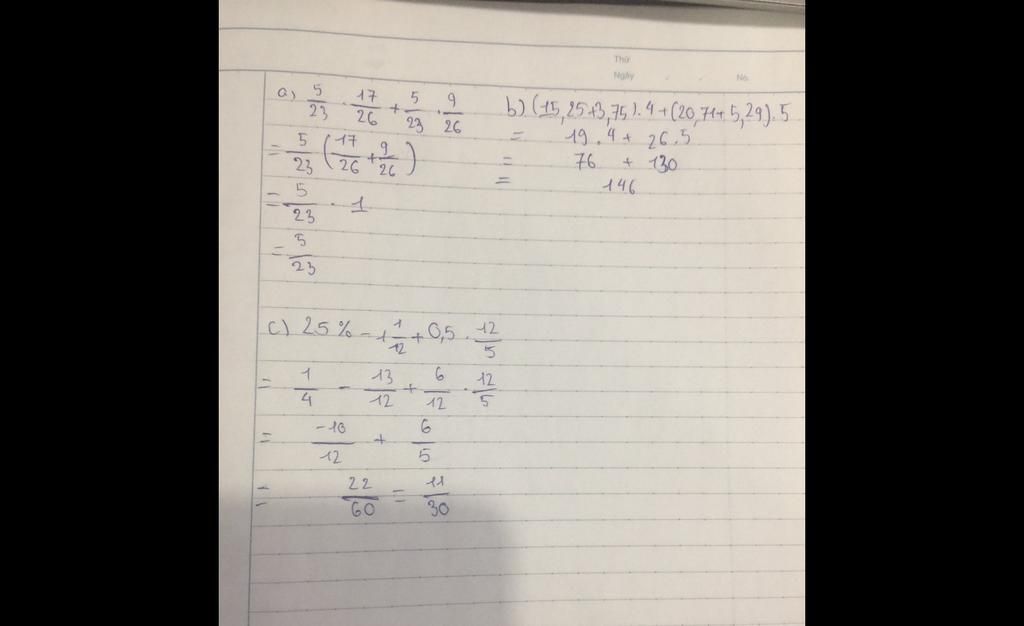 Thứ
Ngày . . No.
a) 5/23 . 17/26 + 5/23 . 9/26
= 5/23 (17/26 + 9/26)
= 5/23 . 1
= 5/23
b) (15,25+3,75).4+(20,71+5,29).5
= 19.4+ 26.5
= 76 + 130
= 146
c) 25% - 1 1/12 + 0,5 . 12/5
= 1/4 - 13/12 + 6/12 . 12/5
= -10/12 + 6/5
= 22/60 = 11/30